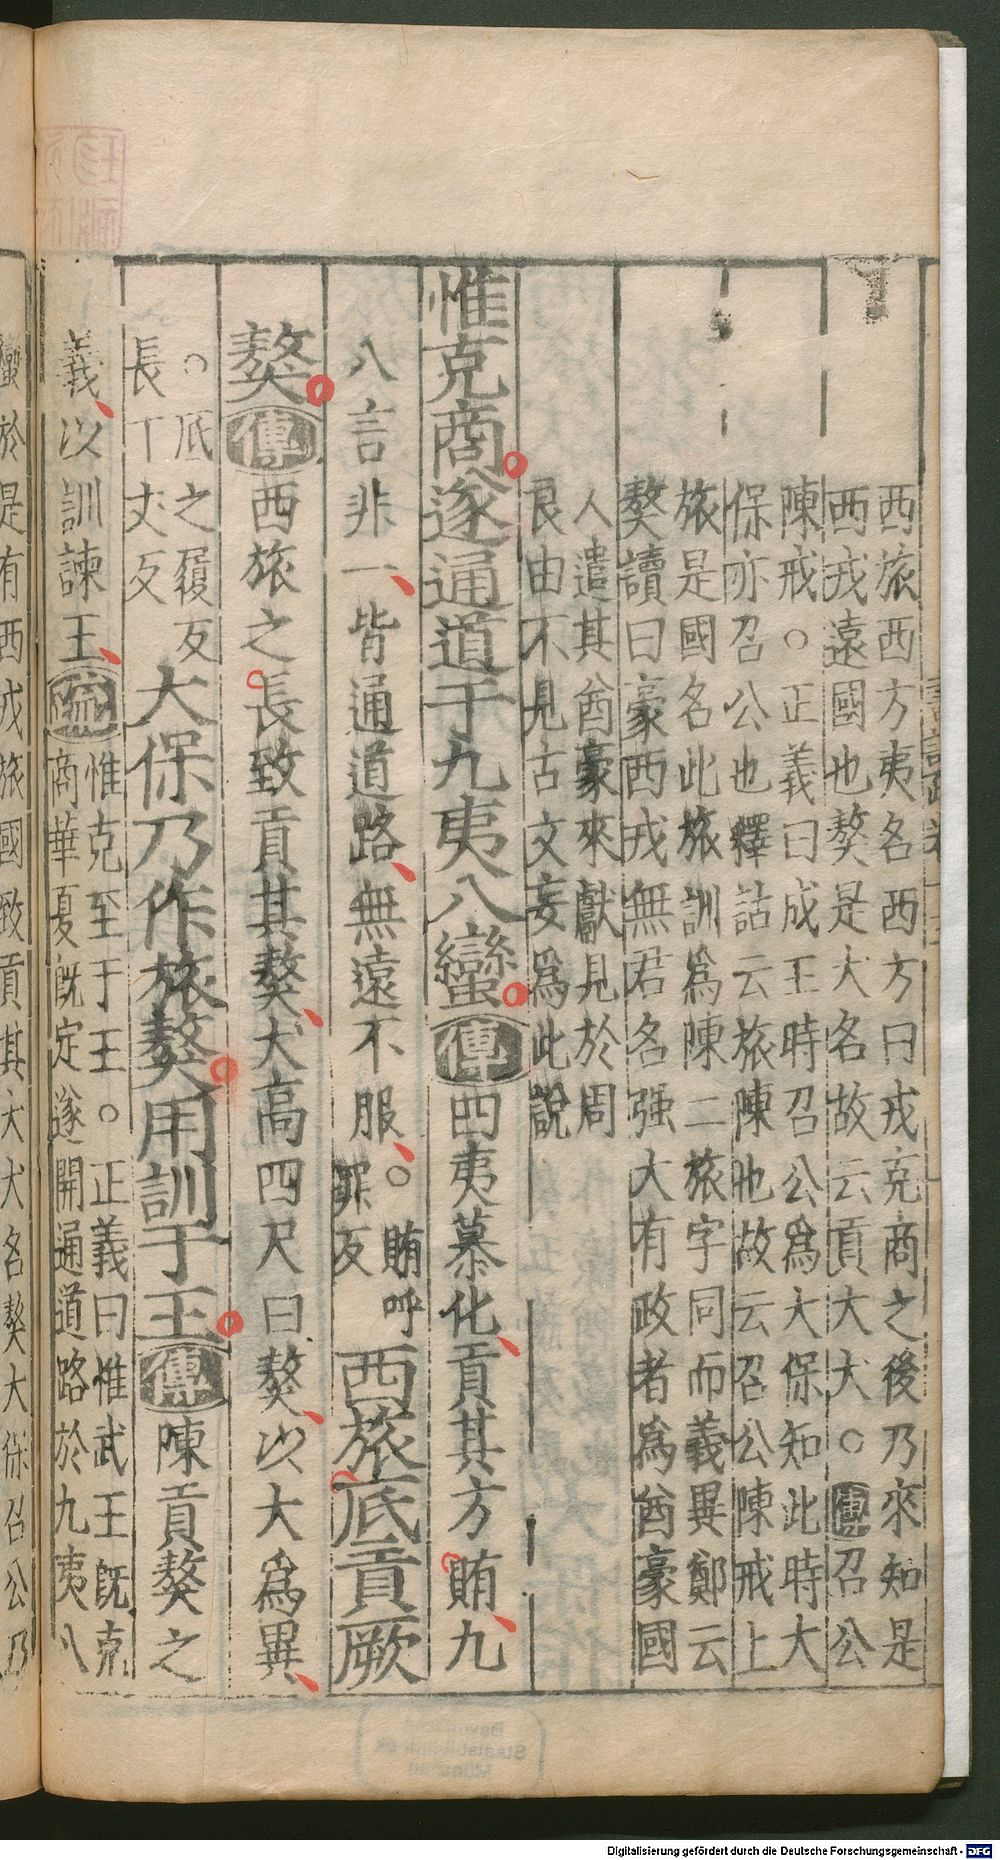 西旅西方夷名西方曰戎克商之後乃來知是
西戎遠國也獒是犬名故云貢大犬○傳召公
陳戒○正義曰成王時召公爲大保知此時大
保亦召公也釋詁云旅陳也故云召公陳戒上
旅是國名此旅訓爲陳二旅字同而義異鄭云
獒讀曰豪西戎無君名强大有政者爲酋豪國
人遣其酋豪來獻見於周
良由不見古文妄爲此說
惟克商遂通道于九夷八蠻傳四夷慕化貢其方賄九
八言非一皆通道路無遠不服○賄呼罪反西旅底貢厥
獒傳西旅之長致貢其獒犬高四尺曰獒以大爲異
○底之履反長丁丈反大保乃作旅獒用訓于王傳陳貢獒之
義以訓諫王疏惟克至于王○正義曰惟武王旣克
商華夏旣定遂開通道路於九夷八
蠻於是有西戎旅國致貢其大犬名獒大保召公乃
Digitalisierung gefördert durch die Deutsche Forschungsgemeinschaft - DFG